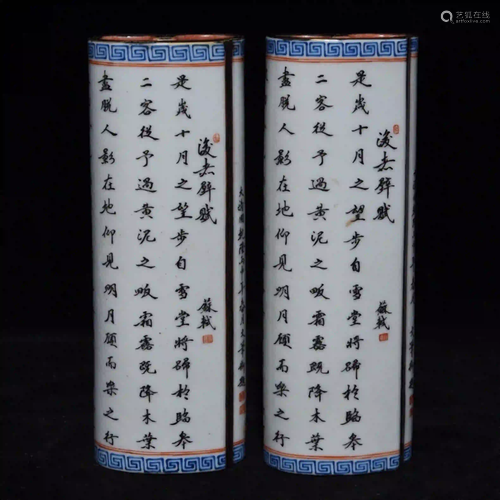 後赤壁賦
蘇軾
是歲十月之望步自雪堂將歸於臨皋
二客從予過黃泥之畈霜露既降木葉
盡脫人影在地仰見明月顧而樂之行
後赤壁賦
蘇軾
是歲十月之望步自雪堂將歸於臨皋
二客從予過黃泥之畈霜露既降木葉
盡脫人影在地仰見明月顧而樂之行
艺狐在线
artfoxlive.com